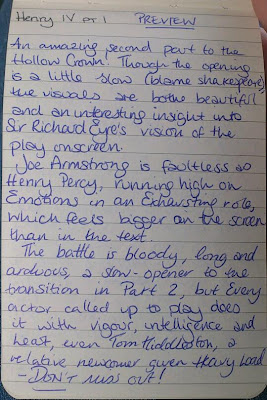 Henry IV pt 1 PREVIEW
An amazing second part to the
Hollow Crown. Though the opening
is a little slow (blame shakespeare),
the visuals are bothe beautiful
and an interesting insight into
Sir Richard Eyre's vision of the
play onscreen.
Joe Armstrong is faultless as
Henry Percy, running high on
Emotions in an Exhausting role,
which feels bigger on the screen
than in the text.
The battle is bloody, long and
arduous, a slow-opener to the
transition in Part 2, but Every
actor called up to play does
it with vigour, intelligence and
heat, even Tom Hiddleston, a
relative newcomer given Heavy Load
- DON'T MISS OUT!